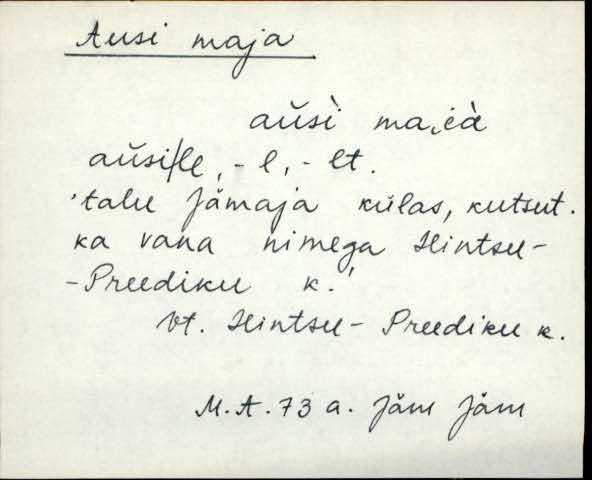 Ausi maja
aŭsì ma̭i̭à
aŭsi/le, -l, -lt.
'talu Jämaja külas, kutsut.
ka vana nimega Hintsu-
-Preediku k.'
vt. Hintsu-Preediku k.
M.A. 73 a. Jäm Jäm